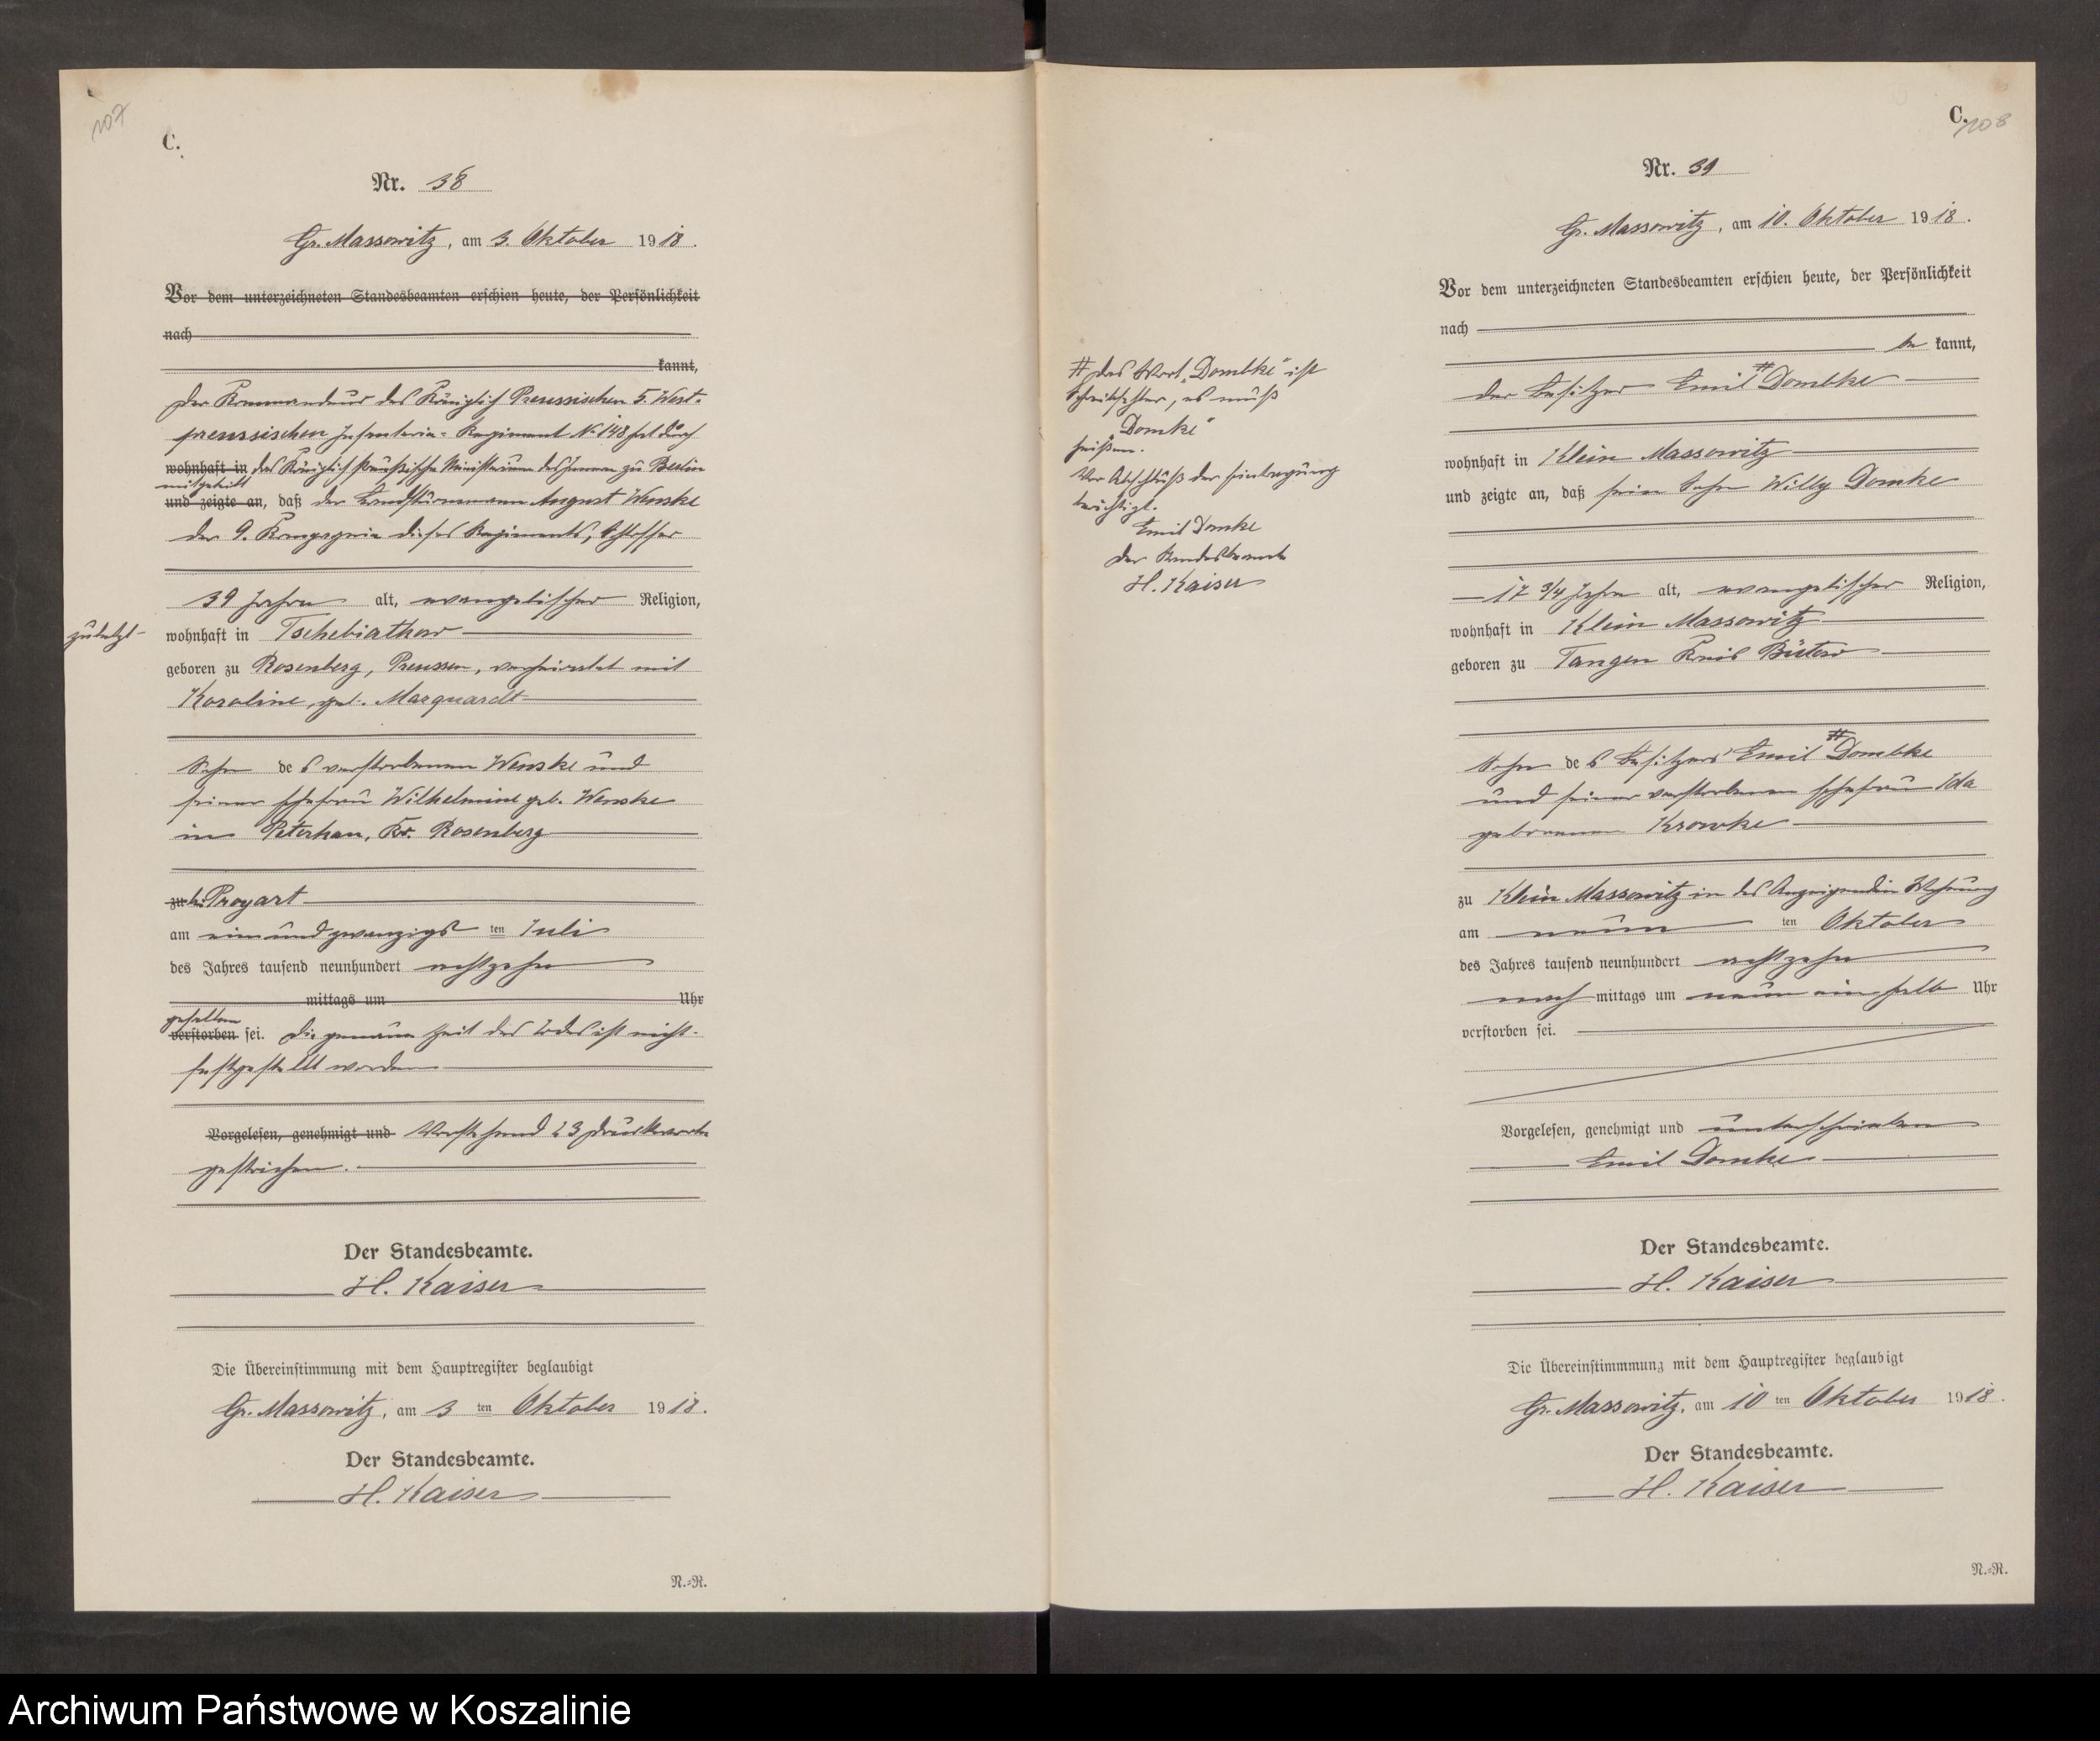 107
C.
Nr. 38
Gr. Massowitz, am 3. Oktober 1918.
Vor dem unterzeichneten Standesbeamten erschien heute, der Persönlichkeit
nach
kannt,
Der Kommandeur des Königlich Preussischen 5. West-
preussischen Infanterie-Regiment No 148 hat durch
wohnhaft in das Königlich Preußische Ministerium des Innern zu Berlin
mitgeteilt
und zeigte an, daß der Landsturmmann August Wenske
der 9. Kompagnie dieses Regiments, Schlosser
39 Jahre alt, evangelischer Religion,
zuletzt
wohnhaft in Tschebiatkow
geboren zu Rosenberg, Preussen, verheiratet mit
Karoline, geb. Marquardt
Sohn des verstorbenen Wenske und
seiner Ehefrau Wilhelmine geb. Wenske
in Peterkau, Kr. Rosenberg
zu b. Proyart
am einundzwanzigsten Juli
des Jahres tausend neunhundert achtzehn
mittags um Uhr
gefallen
verstorben sei. Die genaue Zeit des Todes ist nicht
festgestellt worden
Vorgelesen, genehmigt und Vorstehend 23 Druckworte
gestrichen.
Der Standesbeamte.
H. Kaiser
Die Übereinstimmung mit dem Hauptregister beglaubigt
Gr. Massowitz, am 3 ten Oktober 1918.
Der Standesbeamte.
H. Kaiser
N.-R.
C.
108
Nr. 39
Gr. Massowitz, am 10. Oktober 1918.
Vor dem unterzeichneten Standesbeamten erschien heute, der Persönlichkeit
nach
be kannt,
der Besitzer Emil # Dombke
wohnhaft in Klein Massowitz
und zeigte an, daß sein Sohn Willy Domke
17 3/4 Jahre alt, evangelischer Religion,
wohnhaft in Klein Massowitz
geboren zu Tangen Kreis Bütow
Sohn des Besitzers Emil # Dombke
und seiner verstorbenen Ehefrau Ida
geborenen Krowke
zu Klein Massowitz in des Anzeigenden Wohnung
am neun ten Oktober
des Jahres tausend neunhundert achtzehn
nach mittags um neun ein halb Uhr
verstorben sei.
Vorgelesen, genehmigt und unterschrieben
Emil Domke
Der Standesbeamte.
H. Kaiser
Die Übereinstimmmung mit dem Hauptregister beglaubigt
Gr. Massowitz, am 10 ten Oktober 1918.
Der Standesbeamte.
H. Kaiser
N.-R.
# Das Wort „Dombke" ist
Schreibfehler, es muß
„Domke"
heißen.
Vor Abschluß der Eintragung
berichtigt.
Emil Domke
Der Standesbeamte
H. Kaiser
Archiwum Państwowe w Koszalinie